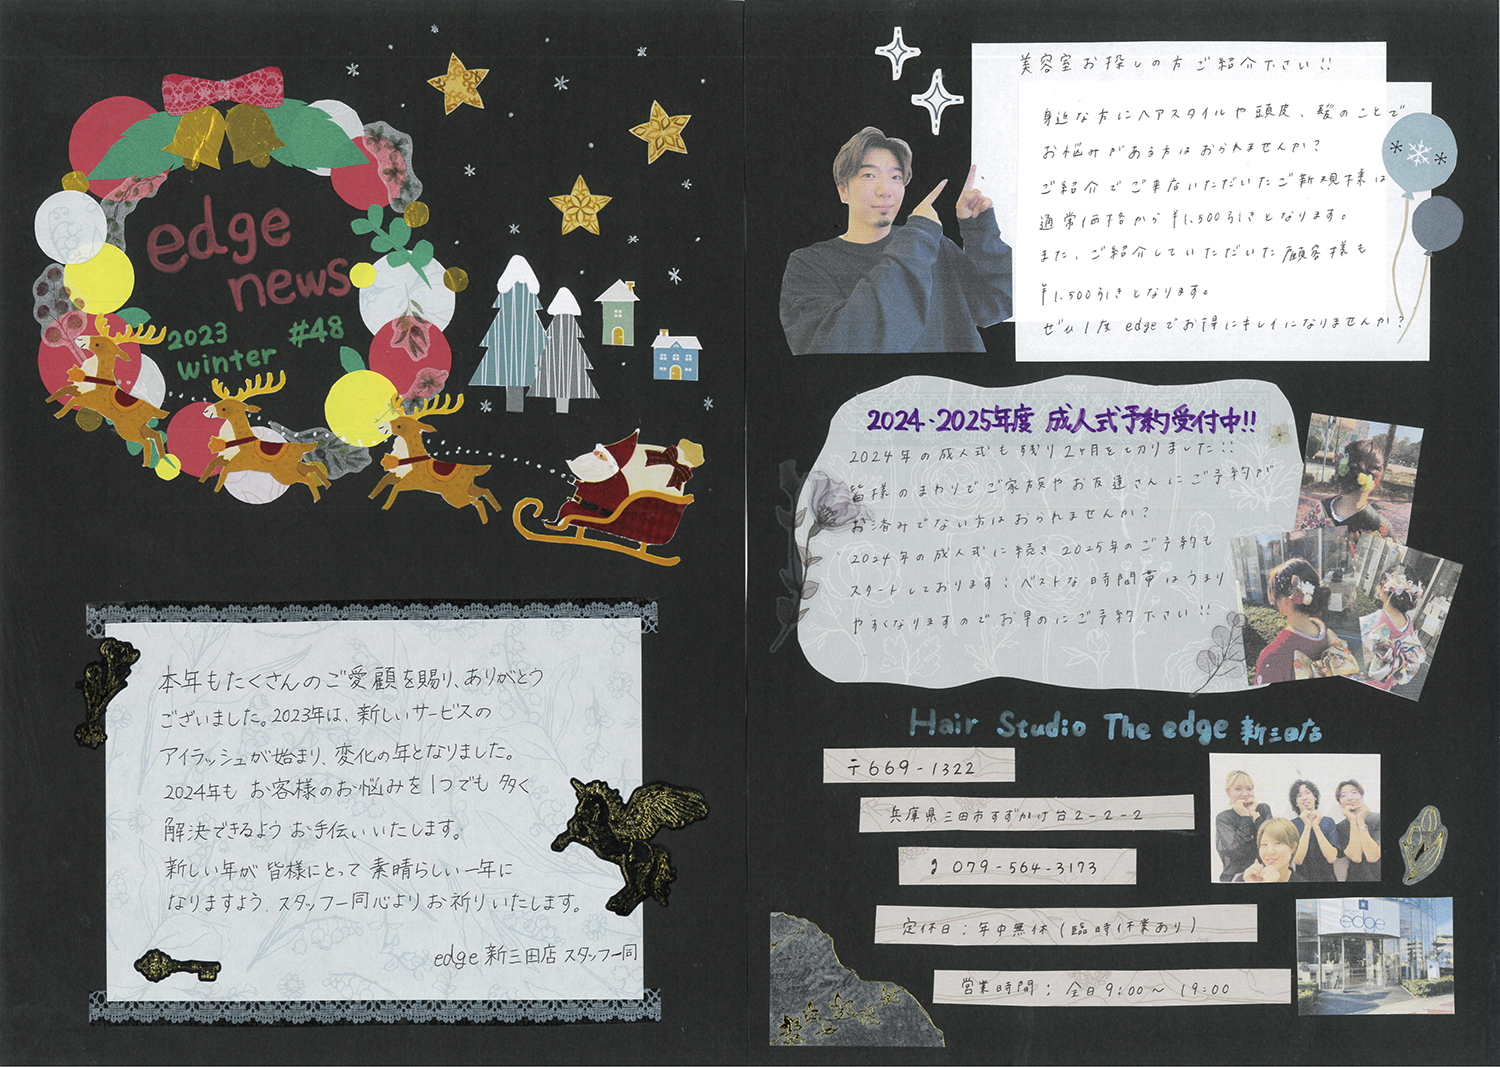 edge
news
2023
winter #48
本年もたくさんのご愛顧を賜り、ありがとう
ございました。2023年は、新しいサービスの
アイラッシュが始まり、変化の年となりました。
2024年も お客様のお悩みを 1つでも 多く
解決できるよう お手伝いいたします。
新しい年が 皆様にとって 素晴らしい一年に
なりますよう、スタッフ一同心よりお祈りいたします。
edge 新三田店 スタッフ一同
美容室お探しの方ご紹介下さい!!
身近な方にヘアスタイルや頭皮、髪のことで
お悩みがある方はおられませんか?
ご紹介でご来店いただいたご新規様は
通常価格から¥1,500引きとなります。
また、ご紹介していただいた顧客様も
¥1,500引きとなります。
ぜひ1度 edgeでお得にキレイになりませんか?
2024・2025年度 成人式予約受付中!!
2024年の成人式も残り2ヶ月を切りました!!
皆様のまわりでご家族やお友達さんにご予約が
お済みでない方はおられませんか?
2024年の成人式に続き 2025年のご予約も
スタートしております! ベストな時間帯はうまり
やすくなりますのでお早めにご予約下さい!!
Hair Studio The edge 新三田店
〒669-1322
兵庫県三田市すずかけ台2-2-2
079-564-3173
定休日：年中無休(臨時休業あり)
営業時間：全日9:00～19:00
edge